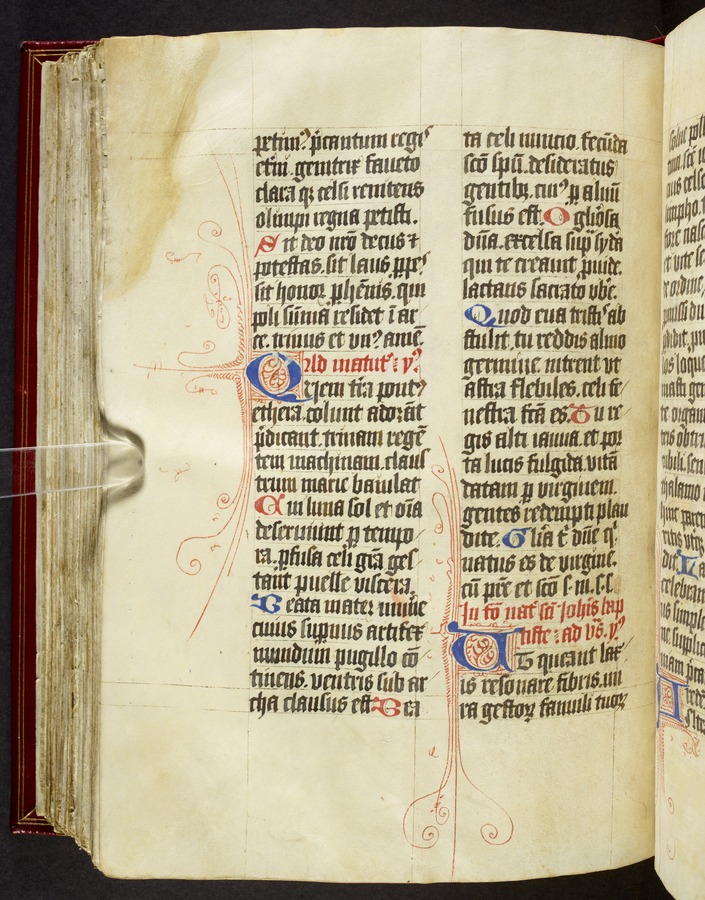 petim⁹. p̄cantum regi
etiā. genitrix faueto
clara q̨ celsi renitens
olimpi regna petisti.
Sit deo nr̄o decus ⁊
potestas. sit laus ppe⁹
sit honor phēnis. qui
poli sūma residet ī ar
ce. trinus et vn⁹ amē.
Ad matut̄ : y⁹.
Qvem t̄ra pont⁹
ethera. colunt adorāt
p̄dicant. trinam regē
tem machinam. claus
trum marie baiulat
Cui luna sol et oīa
deseruiunt p tempo
ra. pfusa celi grā ges
tāt puelle viscera.
Beata mater mune
cuius supnus artifex
mundum pugillo cō
tinens. ventris sub ar
cha clausus est. Bea
ta celi nuncio. fecūda
scō spū. desideratus
gentibꝫ. cui⁹ p aluū
fusus est. O gl̓iosa
dn̄a. excelsa sup syda
qui te creauit puide.
lactasti sacrato vbe.
Quod eua tristis ab
stulit. tu reddis almo
germine. intrent vt
astra flebiles. celi fe
nestra fc̄a es. Tu re
gis alti ianua. et por
ta lucis fulgida. vitā
datam p virginem.
gentes redempti plau
dite. Gl̓ia t̄ dn̄e q̓
natus es de virgine.
cū pr̄e et scō s. in. s. s.
In fō nat̄ sc̄i Joh̄is bap
tiste : ad vs̄. y⁹
UT queant lax
is resonare fibris. mi
ra gestoꝝ famuli tuoꝝ